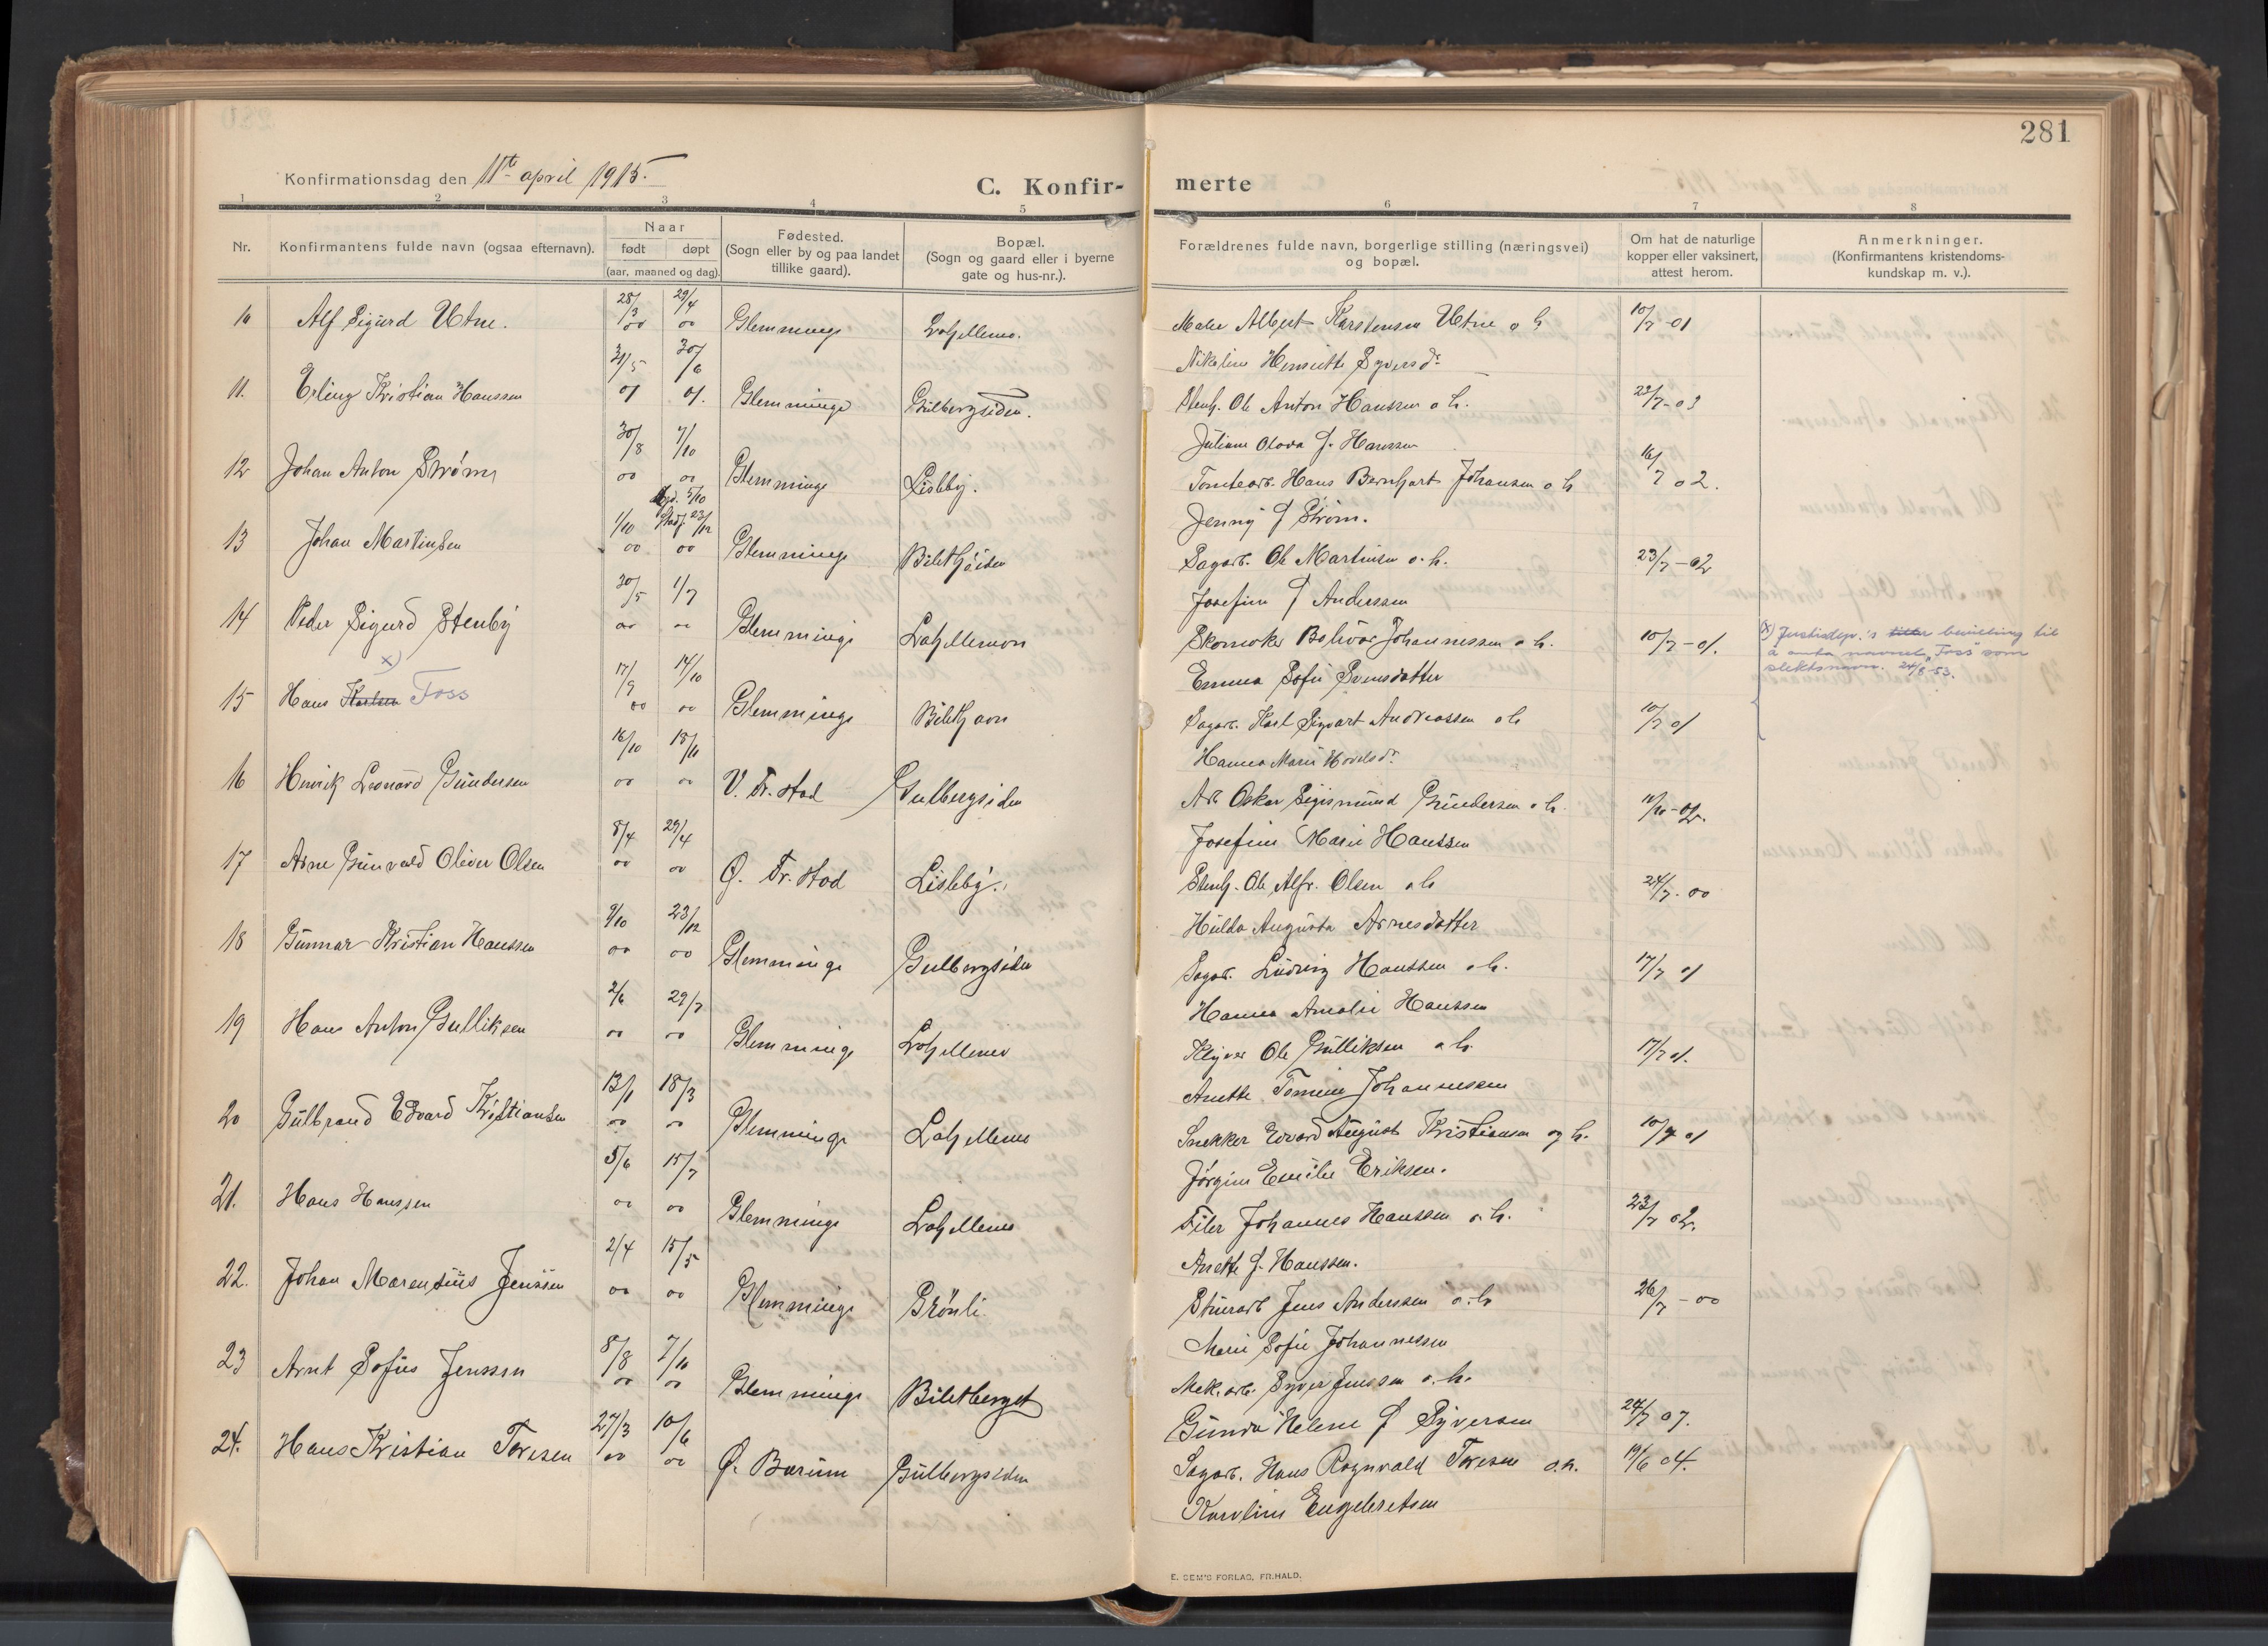 281
Konfirmationsdag den 11te april 1915.
C. Konfir- merte
1 2 3 4 5 6 7 8
Nr. Konfirmantens fulde navn (ogsaa efternavn). Naar født døpt (aar, maaned og dag). Fødested. (Sogn eller by og paa landet tillike gaard). Bopæl. (Sogn og gaard eller i byerne gate og hus-nr.). Forældrenes fulde navn, borgerlige stilling (næringsvei) og bopæl. Om hat de naturlige kopper eller vaksinert, attest herom. Anmerkninger. (Konfirmantens kristendoms- kundskap m. v.).
10 Alf Sigurd Utne. 28/3 00 29/4 00 Glemminge Labjellemo. Maler Albert Karstensen Utne o h 10/7-01
Nikoline Henriette Syversdr
11. Erling Kristian Hanssen 31/5 01 30/6 01. Glemminge Gulbergsiden. Stenh. Ole Anton Hanssen o h. 22/7-03
Juliane Olava f. Hanssen
12 Johan Anton Strøm 30/8 00 7/10 00 Glemminge Lisleby. Tomtearb. Hans Bernhart Johansen o h 16/7 02.
Jenny f Strøm.
13 Johan Martinsen 1/10 00 5/10 23/12 00 Glemminge Sagarb. Ole Martinsen o. h. 23/7-02
Josefine f Anderssen
14 Peder Sigurd Stenby 30/5 00 1/7 00 Glemminge Labjellemon Skomaker Johannessen o h. 10/7-01.
Emma Sofie Svensdatter
x) Justisdep.'s bevilling til
å anta navnet "Foss" som
slektsnavn. 24/8-53.
15 Hans Karlsen x) Foss 17/9 00 14/10 00 Glemminge Sagarb. Karl Sigvart Andreassen o h 10/7 01
Hanna Marie
16 Henrik Leonard Gundersen 16/10 00 18/11 00 V. Fr.stad Gulbergsiden Arb. Oskar Sigismund Gundersen o h. 11/10-02.
Josefine Marie Hanssen
17 Arne Gunvald Oliver Olsen 8/4 00 29/4 00 Ø. Fr.stad Lisleby. Stenh. Ole Alfr. Olsen o h 24/7-00
Hulda Augusta Arnesdatter
18 Gunnar Kristian Hanssen 9/10 00 23/12 00 Glemminge Gulbergsiden Sagarb. Ludvig Hanssen o h. 17/7 01
Hanna Amalie Hanssen
19 Hans Anton Gulliksen 2/6 00 29/7 00 Glemminge Labjellemo Kløver Ole Gulliksen o h. 17/7 01.
Anette Tomine Johannessen
20 Gulbrand Edvard Kristiansen 13/1 00 18/3 00 Glemminge Labjellemo Snekker Edvard August Kristiansen og h. 10/7 01
Jørgine Emilie Eriksen.
21. Hans Hanssen 5/6 00 15/7 00 Glemminge Labjellemo Filer Johannes Hanssen o. h. 23/7 02.
Anette f. Hanssen.
22. Johan Marensius Jenssen 2/4 00 15/5 00 Glemminge Grönli Stuearb Jens Anderssen o. h 26/7-00
Marie Sofie Johannessen
23 Arnt Sofus Jenssen 8/8 00 7/10 00 Glemminge Mek. arb. Syver Jenssen o. h. 24/7 07.
Gunda Helene f Syversen
24. Hans Kristian Toresen 27/3 00 10/6 00 Ø. Bærum Gulbergsiden Sagarb. Hans Ragnvald Toresen o. h. 19/6 04.
Karoline Engebretsen
E. SEM'S FORLAG, FR.HALD.